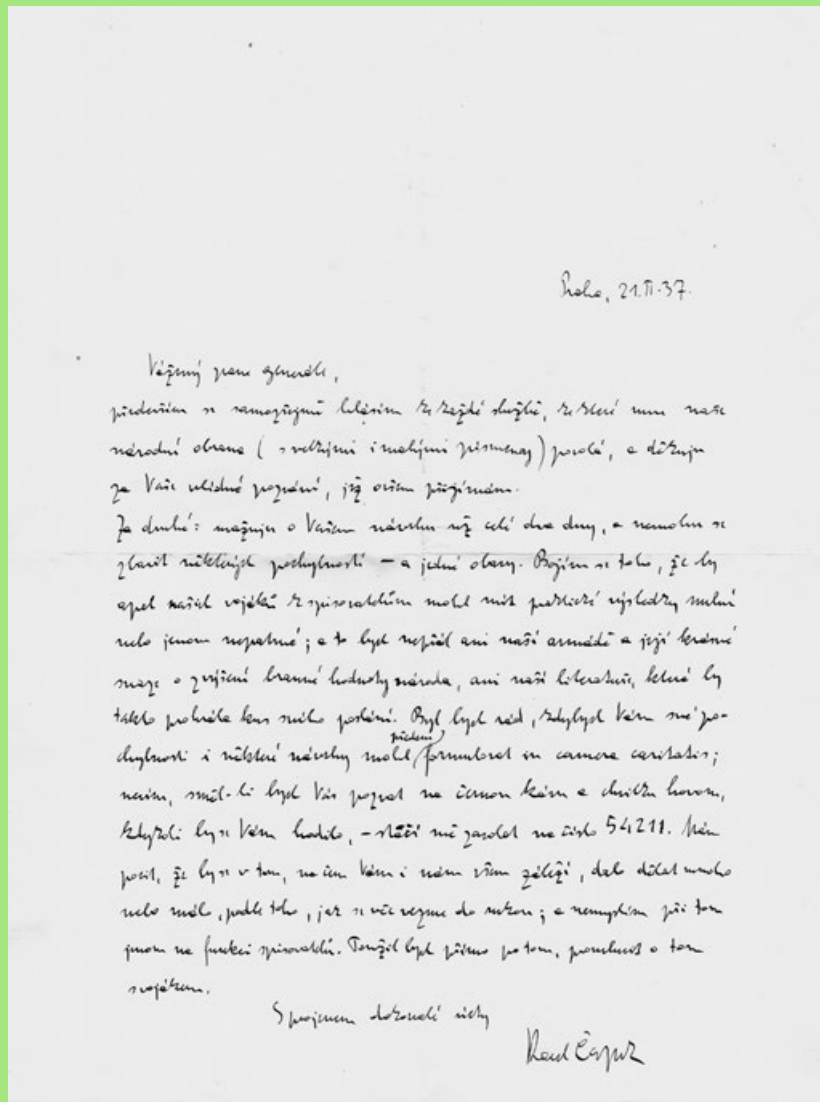 Praha, 21.II.37.
Vážený pane generále,
především se samozřejmě hlásím ke každé službě, ke které mne naše
národní obrana (s velkými i malými písmeny) povolá, a děkuju
za Vaše vlídné pozvání, jež ovšem přijímám.
Za druhé: uvažuju o Vašem návrhu už celé dva dny, a nemohu se
zbavit některých pochybností – a jedné obavy. Bojím se toho, že by
apel našich vojáků k spisovatelům mohl mít praktické výsledky nulné
nebo jenom nepatrné; a to bych nepřál ani naší armádě a její krásné
snaze o zvýšení branné hodnoty národa, ani naší literatuře, která by
takto prohrála kus svého poslání. Byl bych rád, kdybych Vám své po-
chybnosti i některé návrhy mohl předem formulovat in camera caritatis;
nevím, směl-li bych Vás pozvat na černou kávu a chvilku hovoru,
kdykoli by se Vám hodilo, – stačí mě zavolat na číslo 54211. Mám
pocit, že by se v tom, na čem Vám i nám všem záleží, dalo dělat mnoho
nebo málo, podle toho, jak se věc vezme do rukou; a nemyslím při tom
jenom na funkci spisovatelů. Toužil bych přímo po tom, promluvit o tom
s vojákem.
S projevem dokonalé úcty
Karel Čapek